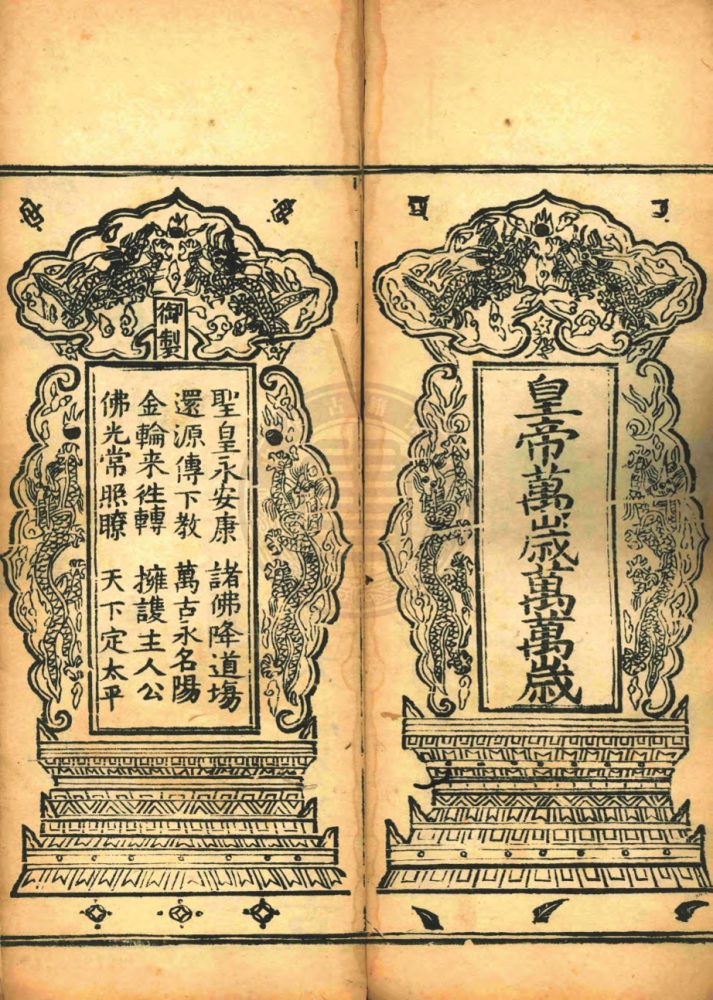 皇帝萬歲萬萬歲
御製
聖皇永安康 諸佛降道場
還源傳下教 萬古永名陽
金輪来往轉 擁護主人公
佛光常照瞭 天下定太平